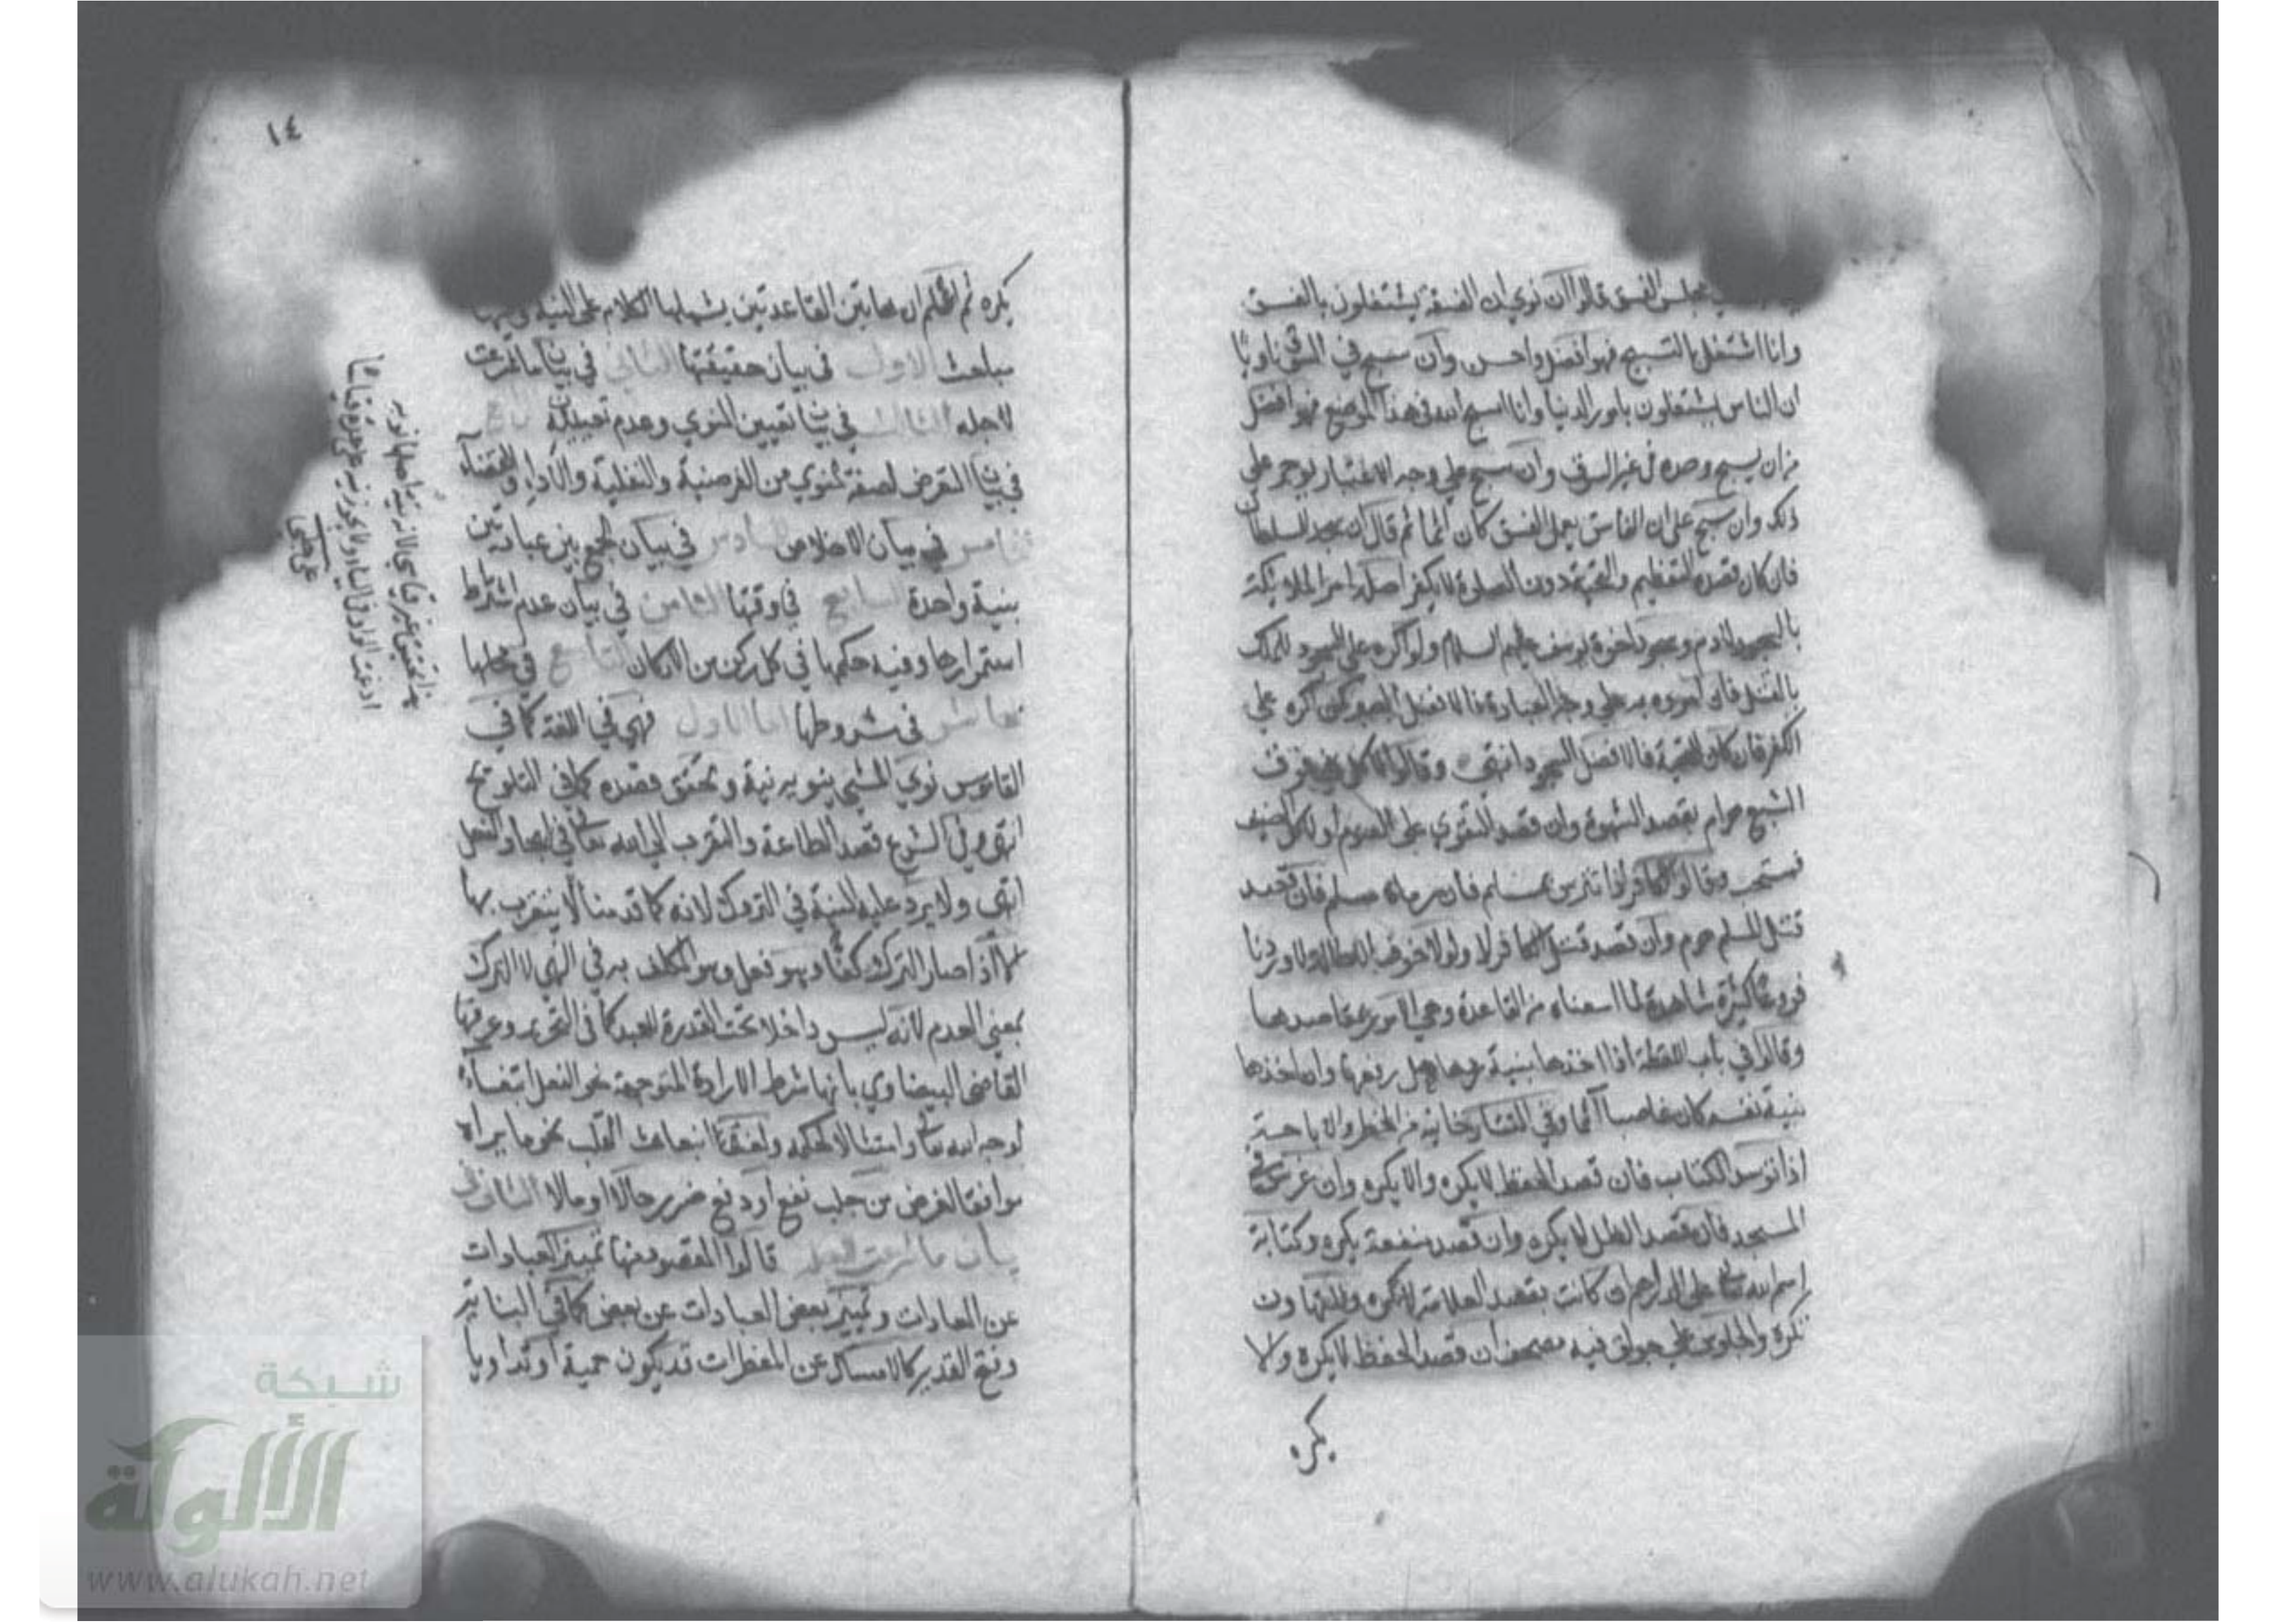 مجلس الفسق قالوا ان نوى ان الفسقة يشتغلون بالفسق
وانا اشتغل بالتسبيح فهو افضل واحسن وان سبح في السوق ناويا
ان الناس يشتغلون بامور الدنيا وانا اسبح الله في هذا الموضع فهو افضل
من ان يسبح وحده في غير السوق وان سبح على وجه الاعتبار يوجر على
ذلك وان سبح على ان الفاسق يعمل الفسق كان اثما ثم قال ان سجد للسلطان
فان كان قصده التعظيم والتحية دون الصلوة لا يكفر اصله امر الملائكة
بالسجود لادم وسجود اخوة يوسف عليهم السلام ولو اكره على السجود للملك
بالقتل فان امروه به على وجه العبادة فالافضل الصبر كمن اكره على
الكفر وان كان للتحية فالافضل السجود انتهى وقالوا الاكل فوق
الشبع حرام بقصد الشهوة وان قصد التقوي على الصوم او لاكل الضيف
فمستحب وقالوا الكافر اذا تترس بمسلم فان رماه مسلم فان قصد
قتل المسلم حرم وان قصد قتل الكافر لا ولولا خوف الاطالة لاوردنا
فروعا كثيرة شاهدة لما اسسناه من القاعدة وهي الامور بمقاصدها
وقالوا في باب اللقطة اذا اخذها بنية ردها حل رفعها وان اخذها
بنية نفسه كان غاصبا آثما وفي التتارخانية من الحظر والاباحة
اذا توسد الكتاب فان قصد الحفظ لا يكره والا يكره وان غرس في
المسجد فان قصد الظل لا يكره وان قصد منفعة يكره وكتابة
اسم الله تعالى على الدراهم ان كانت بقصد العلامة لا يكره وللتهاون
يكره والجلوس على جوالق فيه مصحف ان قصد الحفظ لا يكره والا
يكره
١٤
يكره ثم اعلم ان هاتين القاعدتين يشملهما الكلام على النية وفيها
مباحث الاول في بيان حقيقتها الثاني في بيان ما شرعت
لاجله الثالث في بيان تعيين المنوي وعدم تعيينه الرابع
في بيان التعرض لصفة المنوي من الفرضية والنفلية والاداء والقضاء
الخامس في بيان الاخلاص السادس في بيان الجمع بين عبادتين
بنية واحدة السابع في وقتها الثامن في بيان عدم اشتراط
استمرارها وفيه حكمها في كل ركن من الاركان التاسع في محلها
العاشر في شروطها اما الاول فهي في اللغة كما في
القاموس نوى الشيء ينويه نية وتحقق قصده كما في التلويح
انتهى وفي الشرع قصد الطاعة والتقرب الى الله تعالى في ايجاد الفعل
انتهى ولا يرد عليه النية في التروك لانه كما قدمنا لا يتقرب بها
الا اذا صار الترك كفا وهو فعل وهو المكلف به في النهي لا الترك
بمعنى العدم لانه ليس داخلا تحت القدرة للعبد كما في التحرير وعرفها
القاضي البيضاوي بانها شرط الارادة المتوجهة نحو الفعل ابتغاء
لوجه الله تعالى وامتثالا لحكمه ولغة انبعاث القلب نحو ما يراه
موافقا لغرض من جلب نفع او دفع ضرر حالا او مالا الثاني في
بيان ما شرعت لاجله قالوا المقصود منها تمييز العبادات
عن العادات وتمييز بعض العبادات عن بعض كما في البناية
وفتح القدير كالامساك عن المفطرات قد يكون حمية او تداويا
شبكة
الألوكة
www.alukah.net